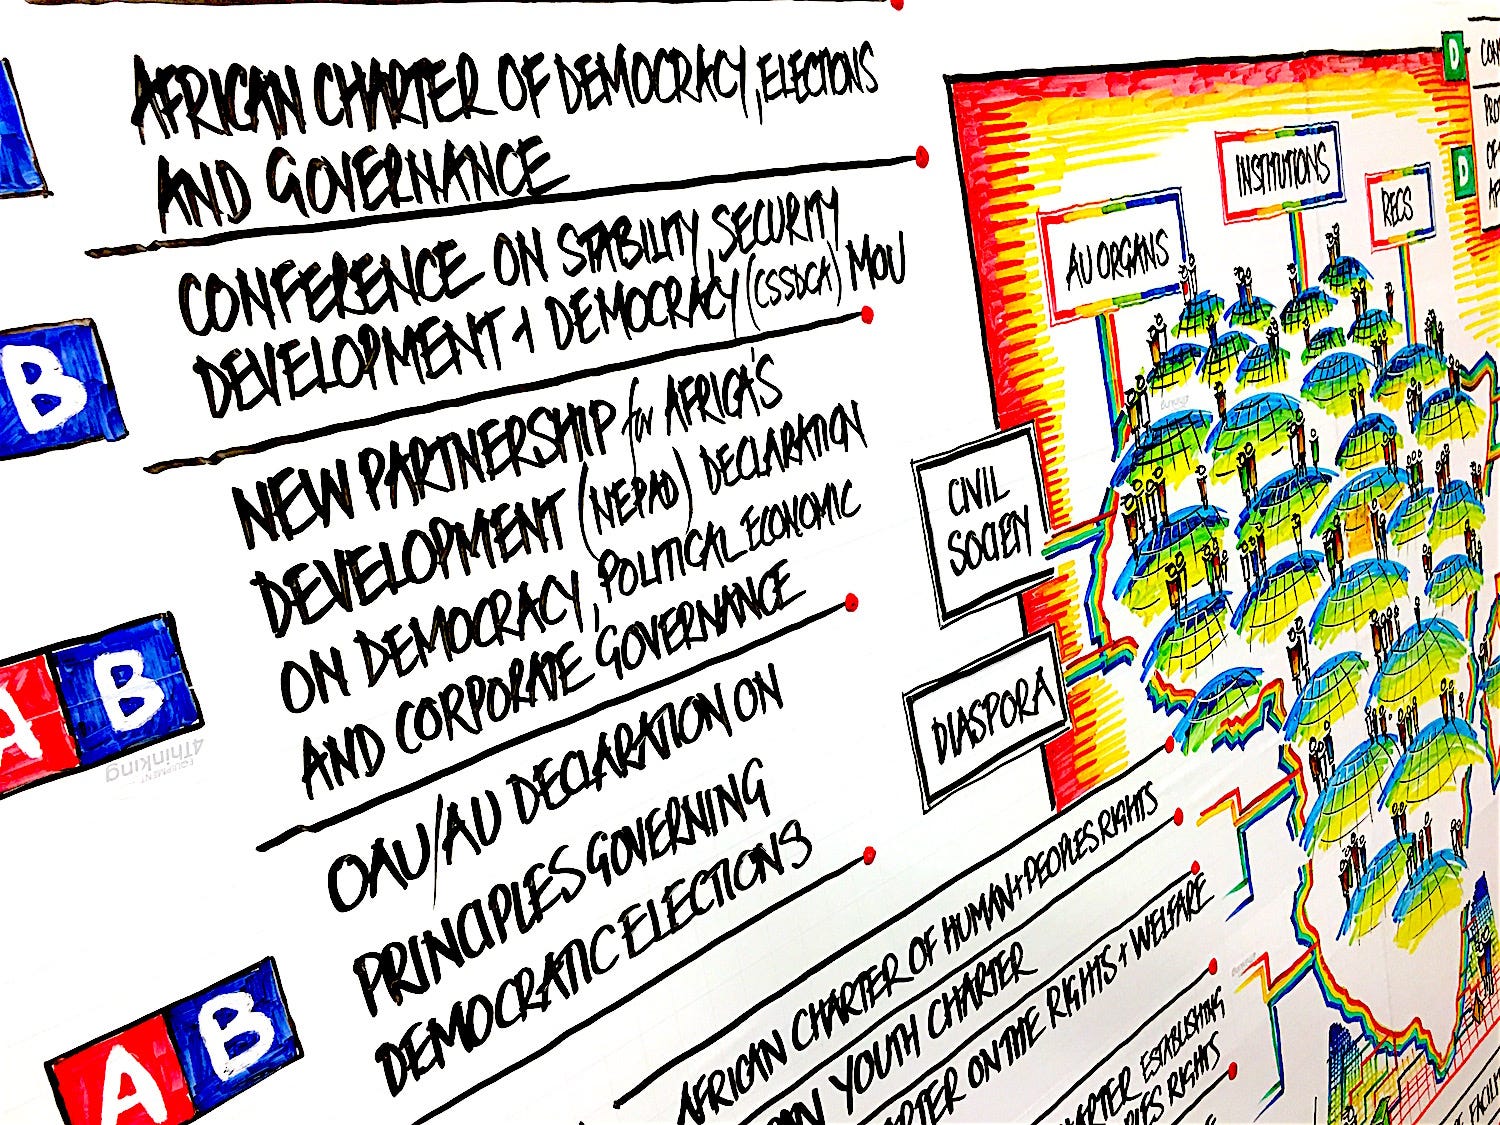 AFRICAN CHARTER OF DEMOCRACY, ELECTIONS
AND GOVERNANCE
B
CONFERENCE ON STABILITY, SECURITY
DEVELOPMENT + DEMOCRACY (CSSDCA) MOU
A B
NEW PARTNERSHIP for AFRICA'S
DEVELOPMENT (NEPAD) DECLARATION
ON DEMOCRACY, POLITICAL ECONOMIC
AND CORPORATE GOVERNANCE
A B
OAU/AU DECLARATION ON
PRINCIPLES GOVERNING
DEMOCRATIC ELECTIONS
AFRICAN CHARTER OF HUMAN + PEOPLES RIGHTS
YOUTH CHARTER
ON THE RIGHTS + WELFARE
ESTABLISHING
RIGHTS
AU ORGANS
INSTITUTIONS
RECS
CIVIL
SOCIETY
DIASPORA
D
D
EQUIPMENT
4Thinking